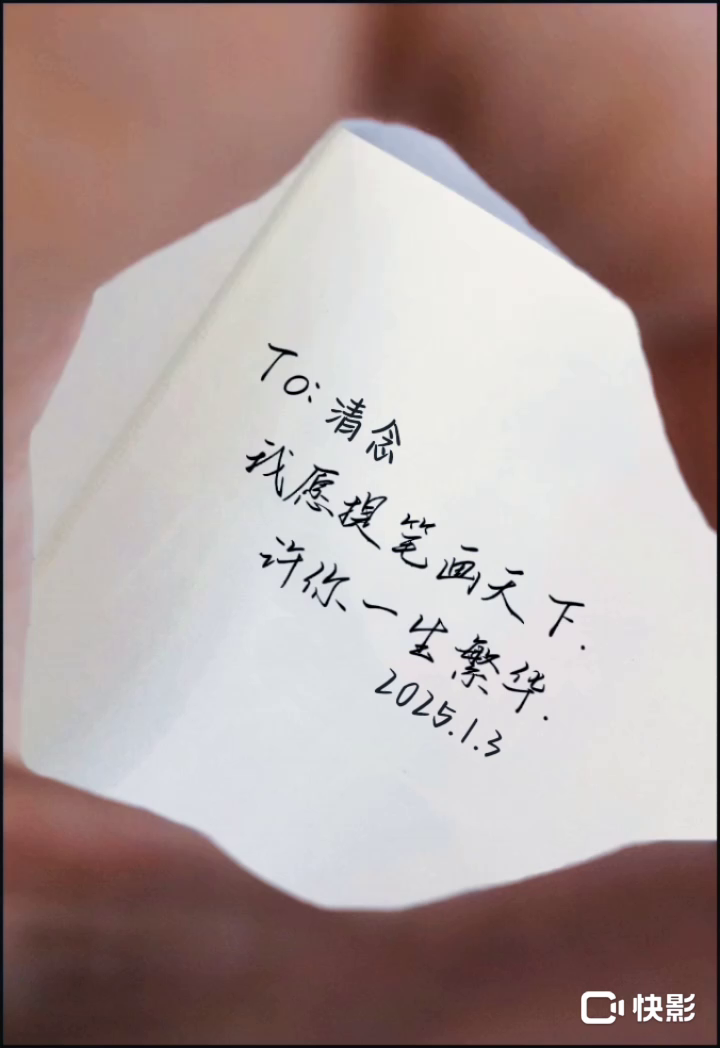 To: 清念
我愿提笔画天下.
许你一生繁华.
2025.1.3
快影